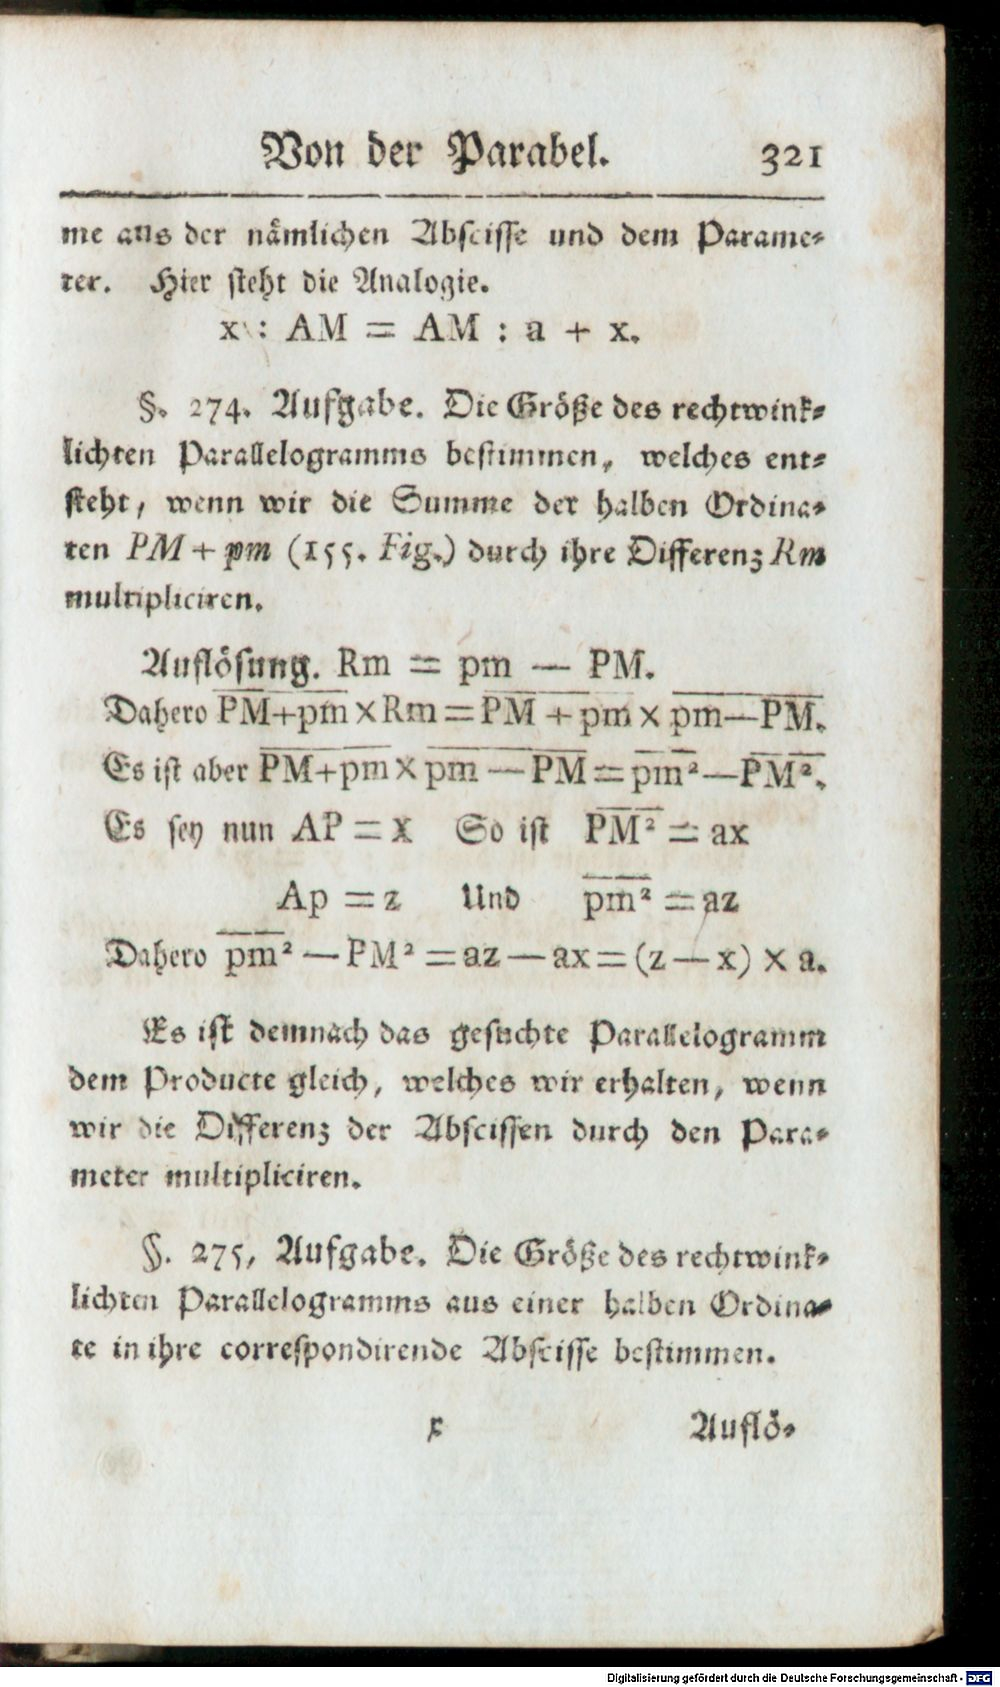 Von der Parabel. 321
me aus der nämlichen Abscisse und dem Parame-
ter. Hier steht die Analogie.
x : AM = AM : a + x.
§. 274. Aufgabe. Die Größe des rechtwink-
lichten Parallelogramms bestimmen, welches ent-
steht, wenn wir die Summe der halben Ordina-
ten PM + pm (155. Fig.) durch ihre Differenz Rm
multipliciren.
Auflösung. Rm = pm — PM.
Dahero P̅M̅+̅p̅m̅ × Rm = P̅M̅ ̅+̅ ̅p̅m̅ × p̅m̅—̅P̅M̅.
Es ist aber P̅M̅+̅p̅m̅ × p̅m̅ ̅—̅ ̅P̅M̅ = p̅m̅² — P̅M̅².
Es sey nun AP = x So ist P̅M̅² = ax
Ap = z Und p̅m̅² = az
Dahero p̅m̅² — PM² = az — ax = (z — x) × a.
Es ist demnach das gesuchte Parallelogramm
dem Producte gleich, welches wir erhalten, wenn
wir die Differenz der Abscissen durch den Para-
meter multipliciren.
§. 275, Aufgabe. Die Größe des rechtwink-
lichten Parallelogramms aus einer halben Ordina-
te in ihre correspondirende Abscisse bestimmen.
X Auflö-
Digitalisierung gefördert durch die Deutsche Forschungsgemeinschaft - DFG